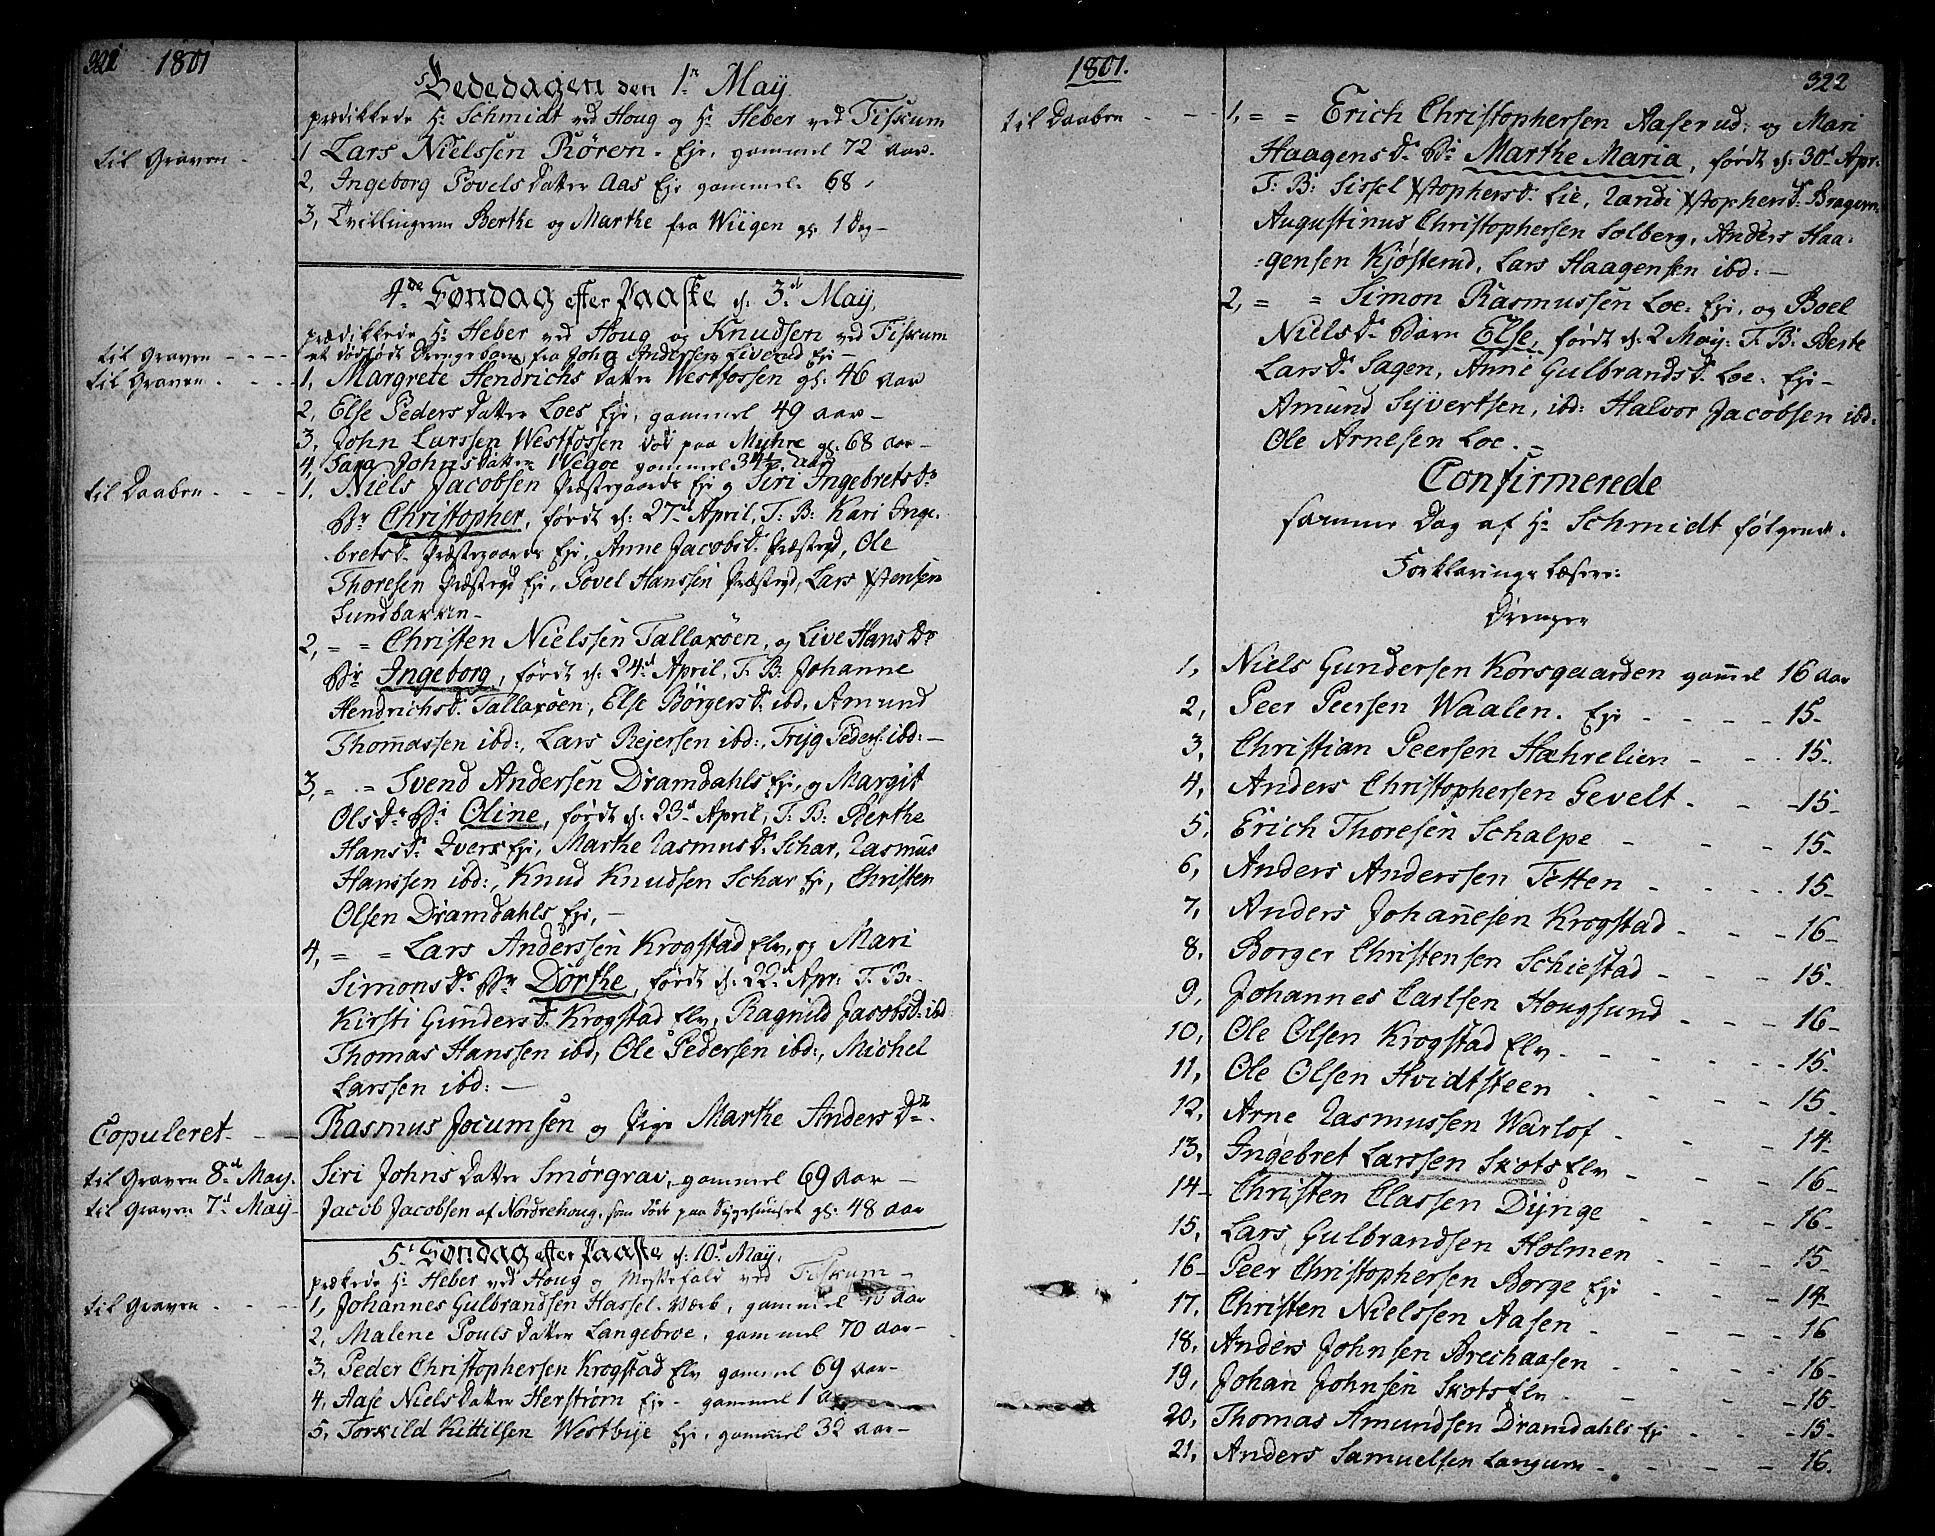 321 1801
Bededagen den 1te May
prædikkede Hr Schmidt ved Houg og Hr Heber ved Fiskum
til Graven - 1 Lars Nielssen Røren. Eje, gammel 72 Aar.
2, Ingeborg Povels Datter Aas Eje gammel 68 -
3, Tvillingerne Berthe og Marthe fra Wiigen gl: 1 Dag -
4de Søndag efter Paaske d: 3d May,
prædikkede Hr Heber ved Houg og Knudsen ved Fiskum
til Graven - - - - et dødfødt Drengebarn fra John Andersen Liverud Eje -
til Graven - - - 1, Margrete Hendrichs Datter Westfossen gl: 46 Aar
2, Else Peders Datter Loes Eje, gammel 49 Aar -
3, John Larssen Westfossen død paa Myhre gl: 68 Aar -
4, Sara Johns Datter Wegoe gammel 34½ Aar
til Daaben - - - 1, Niels Jacobsen Præstegaards Eje og Siri Ingebrets Dr
Br Christopher, født d: 27d April, F: B: Kari Inge-
brets Dr Præstegaards Eje, Anne Jacobs Dr Præstegd, Ole
Thoresen Præstegd Eje, Povel Hanssen Præstegd, Lars Xstensen
Sundbakken -
2, = = Christen Nielssen Tallaxøen, og Live Hans Dr
Br Ingeborg, født d: 24d April, F: B: Johanne
Hendrichs Dr Tallaxøen, Else Børgers Dr ibd, Amund
Thomassen ibd:, Lars Rejersen ibd:, Tryg Peders: ibd: -
3, = = Svend Andersen Dramdahls Eje, og Margit
Ols Dr Br Oline, født d: 23d April, F: B: Berthe
Hans Dr Ivers Eje, Marthe Rasmus Dr Schar, Rasmus
Hanssen ibd:, Knud Knudsen Schar Eje, Christen
Olsen Dramdahls Eje, -
4, = = Lars Anderssen Krogstad Elv, og Mari
Simons Dr Br Dorthe, født d: 22d Apr: F: B: -
Kirsti Gunders Dr Krogstad Elv, Ragnild Jacobsd: ibd
Thomas Hanssen ibd, Ole Pedersen ibd:, Michel
Larssen ibd: -
Copuleret - - - Rasmus Jocumsen og Pige Marthe Anders Dr
til Graven 8d May. Siri Johns Datter Smørgrav, gammel 69 Aar -
til Graven 7d May - Jacob Jacobsen af Nordrehoug, som døde paa Sygehuuset gl: 48 Aar
5te Søndag efter Paaske d: 10d May,
prækede Hr Heber ved Houg og Messefald ved Fiskum -
til Graven - - - 1, Johannes Gulbrandsen Hassel-Værk, gammel Aar
2, Malene Pouls Datter Langebroe, gammel 70 Aar -
3, Peder Christophersen Krogstad Elv gammel 69 Aar -
4, Aase Niels Datter Herstrøm Eje - gammel 1
5, Torkild Kittilsen Westbye Eje, gammel 32 Aar -
1801. 322
til Daaben - - - 1, = = Erich Christophersen Aaserud: og Mari
Haagens Dr Br Marthe Maria, født d: 30d Apr.
F: B: Sissel Xstophers Dr Lie, Randi Xstophers Dr Bragern:
Augustinus Christophersen Solberg, Anders Haa-
gensen Kjøsterud, Lars Haagensen ibd: -
2, = = Simon Rasmussen Loe: Eje, og Boel
Niels Dr Barn Else, født d: 2 May: F: B: Berte
Lars Dr Sagen, Anne Gulbrands Dr Loe: Eje -
Amund Syvertsen, ibd: Halvor Jacobsen ibd:
Ole Arnesen Loe. -
Confirmerede
samme Dag af Hr Schmidt følgende.
Forklarings Læsere:
Drenger
1, Niels Gundersen Korsgaarden gamel 16 Aar
2, Peer Peersen Waalen. Eje - - - - 15 -
3, Christian Peersen Hæhrelien - - - 15 -
4, Anders Christophersen Gevelt - - - 15 -
5, Erich Thoresen Schalpe - - - 15 -
6, Anders Anderssen Tetten - - - - 15 -
7, Anders Johanesen Krogstad - - - - 16 -
8, Borger Christensen Schiestad - - - 15 -
9, Johannes Carlsen Hougsund - - - - 16 -
10, Ole Olsen Krogstad Elv - - - - - 15 -
11, Ole Olsen Hvidtsteen - - - - 15 -
12, Arne Rasmussen Warlof - - - 14 -
13, Ingebret Larssen Skots Elv - - - 16 -
14 - Christen Classen Dynge - - - - 16 -
15, Lars Gulbrandsen Holmen - - - - 15 -
16 - Peer Christophersen Borge Eje - - - - 14 -
17, Christen Nielssen Aasen - - - - 16
18, Anders Johnsen Brechaasen - - - - 16 -
19, Johan Johnsen Skots Elv - - - - 15 -
20, Thomas Amundsen Dramdahls Eje - - - 15 -
21, Anders Samuelsen Langum - - - - - 16.